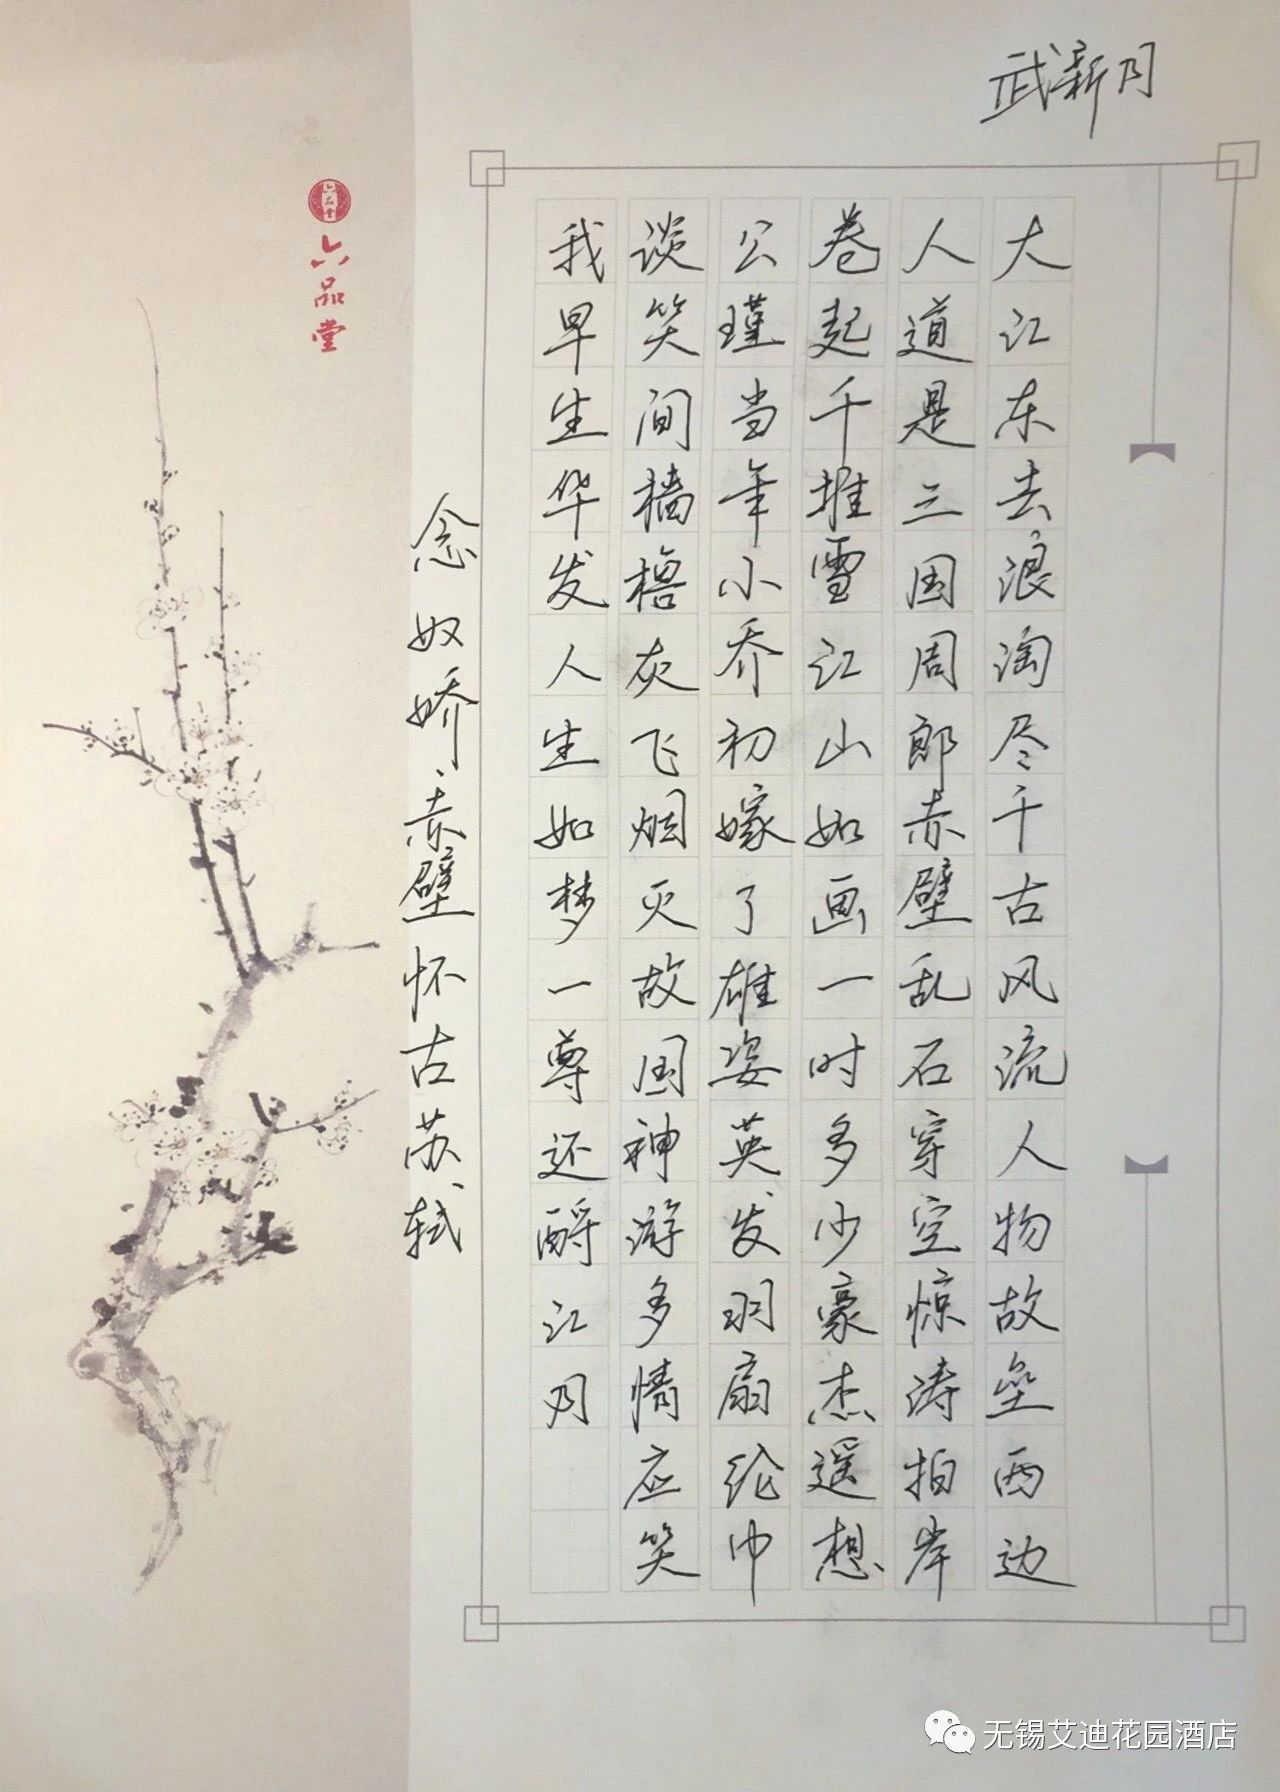 武新月
大江东去浪淘尽千古风流人物故垒西边
人道是三国周郎赤壁乱石穿空惊涛拍岸
卷起千堆雪江山如画一时多少豪杰遥想
公瑾当年小乔初嫁了雄姿英发羽扇纶巾
谈笑间樯橹灰飞烟灭故国神游多情应笑
我早生华发人生如梦一尊还酹江月
念奴娇·赤壁怀古苏轼
六品堂
六品堂
无锡艾迪花园酒店